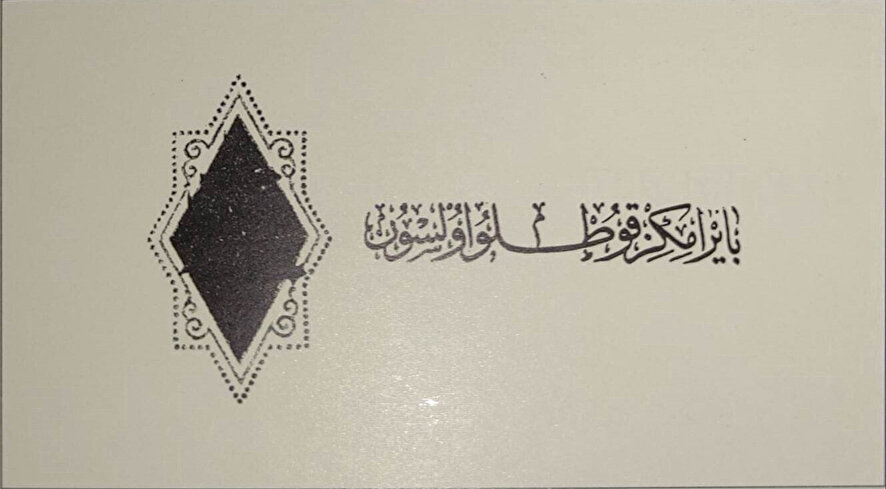 بايرامكز قوطلو اولسون